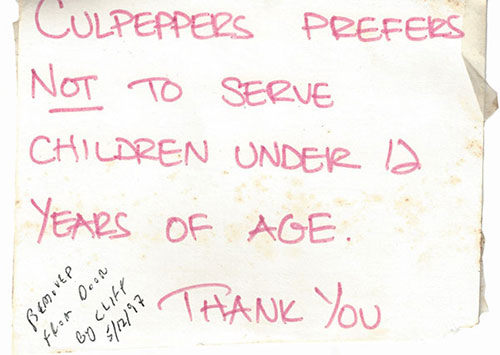 CULPEPPERS PREFERS
NOT TO SERVE
CHILDREN UNDER 12
YEARS OF AGE.
THANK YOU
REMOVED
FROM DOOR
BY CLIFF
5/12/97